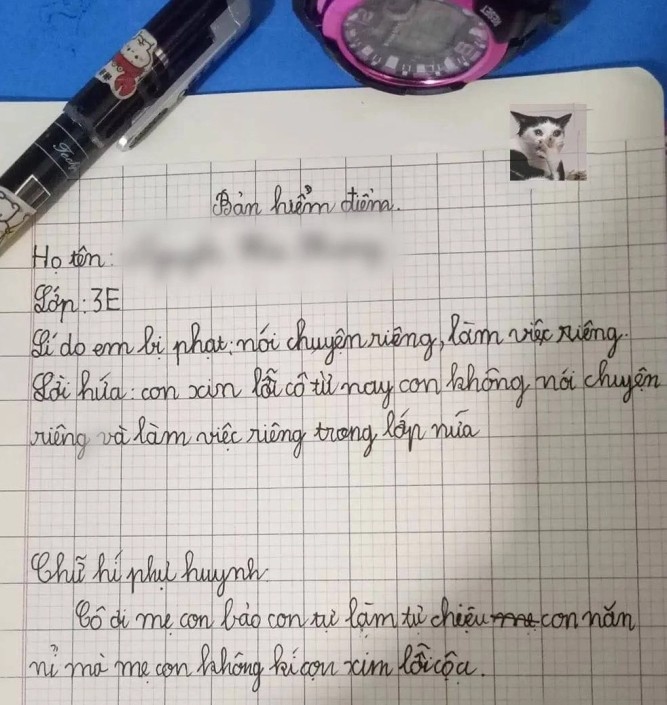 Bản hiểm điểm.
Họ tên:
Lớp: 3E
Lí do em bị phạt: nói chuyện riêng, làm việc riêng.
Lời hứa: con xin lỗi cô từ nay con không nói chuyện
riêng và làm việc riêng trong lớp nữa
Chữ kí phụ huynh:
Cô ơi mẹ con bảo con tự làm tự chịu con năn
nỉ mà mẹ con không kí con xin lỗi cô ạ.
RESET